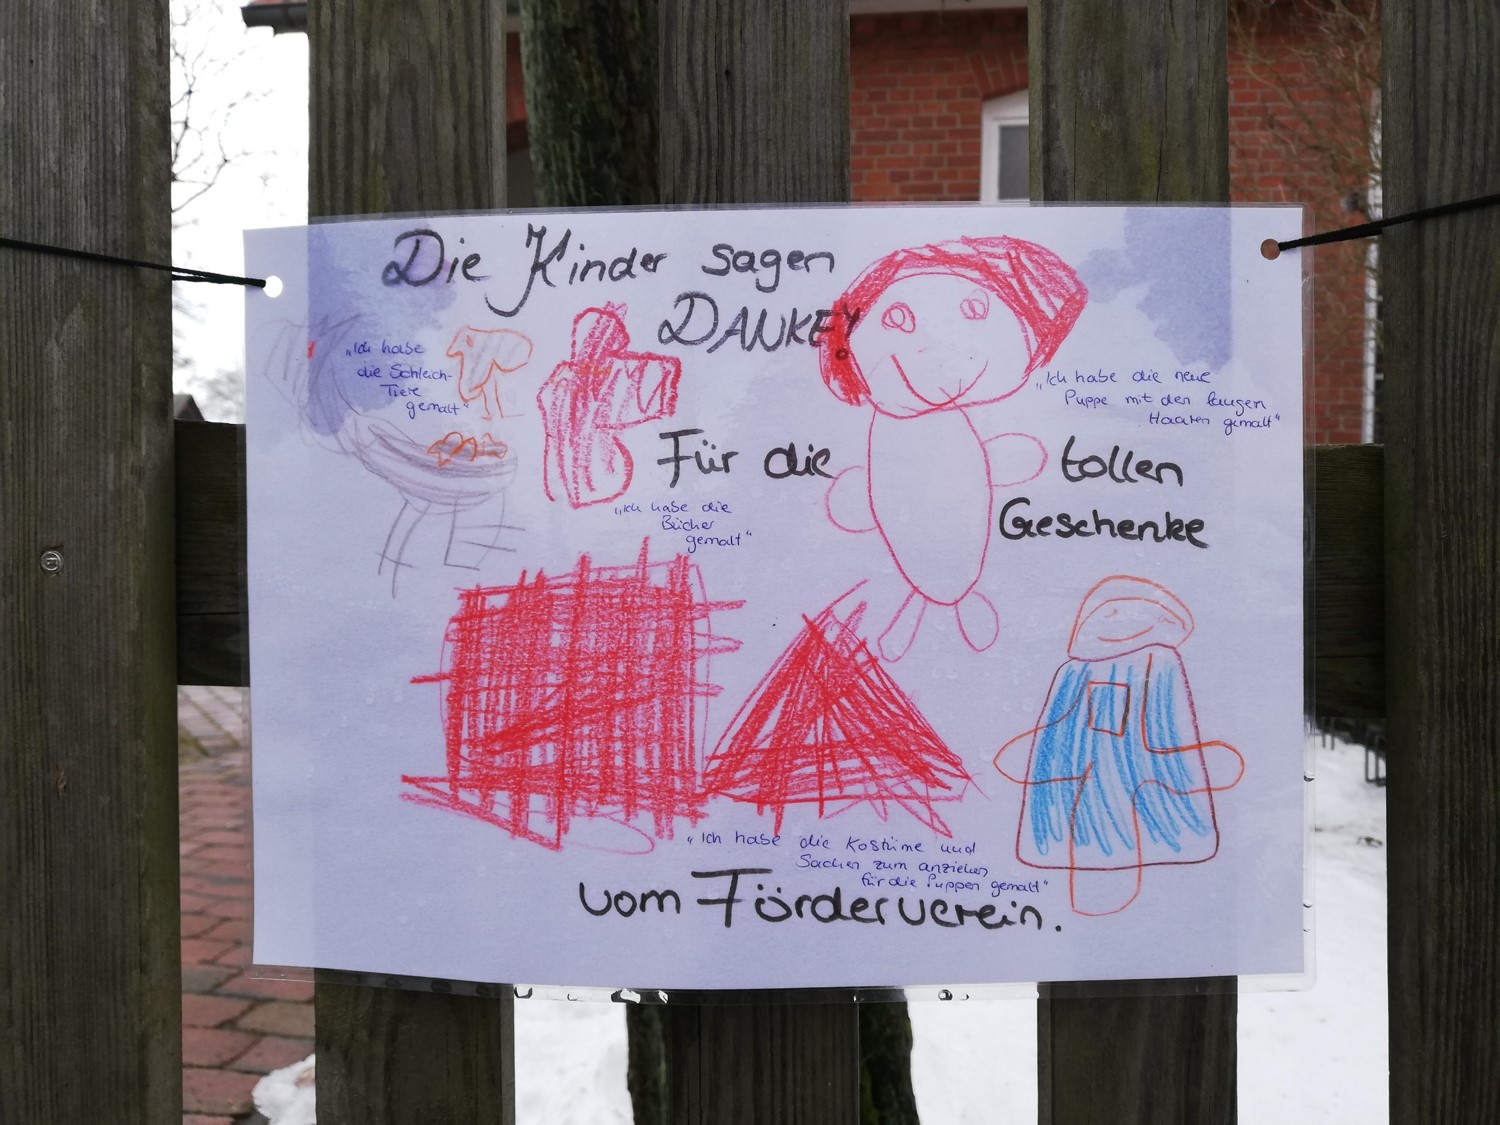 Die Kinder sagen
DANKE!
„Ich habe
die Schleich-
Tiere
gemalt“
„Ich habe die neue
Puppe mit den langen
Haaren gemalt“
Für die tollen
Geschenke
„Ich habe die
Bücher
gemalt“
„Ich habe die Kostüme und
Sachen zum anziehen
für die Puppen gemalt“
vom Förderverein.